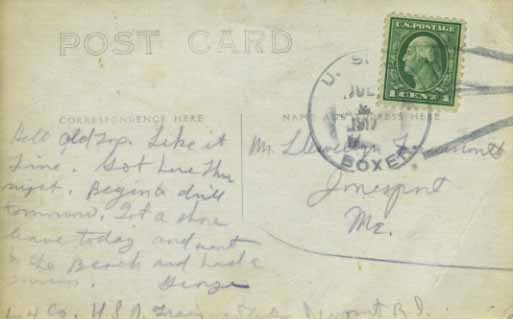 POST CARD
U.S. POSTAGE
1 CENT 1
U. S.
JUL
BOXER
CORRESPONDENCE HERE
NAME AND ADDRESS HERE
Hello old Top. Like it
fine. Got here Thur
night. Begin to drill
tomorrow. Got a shore
leave today and went
to the Beach and had a
swim. George
4 Co. U.S.N. Training R.I.
Mr. Llewellyn
Jonesport
Me.